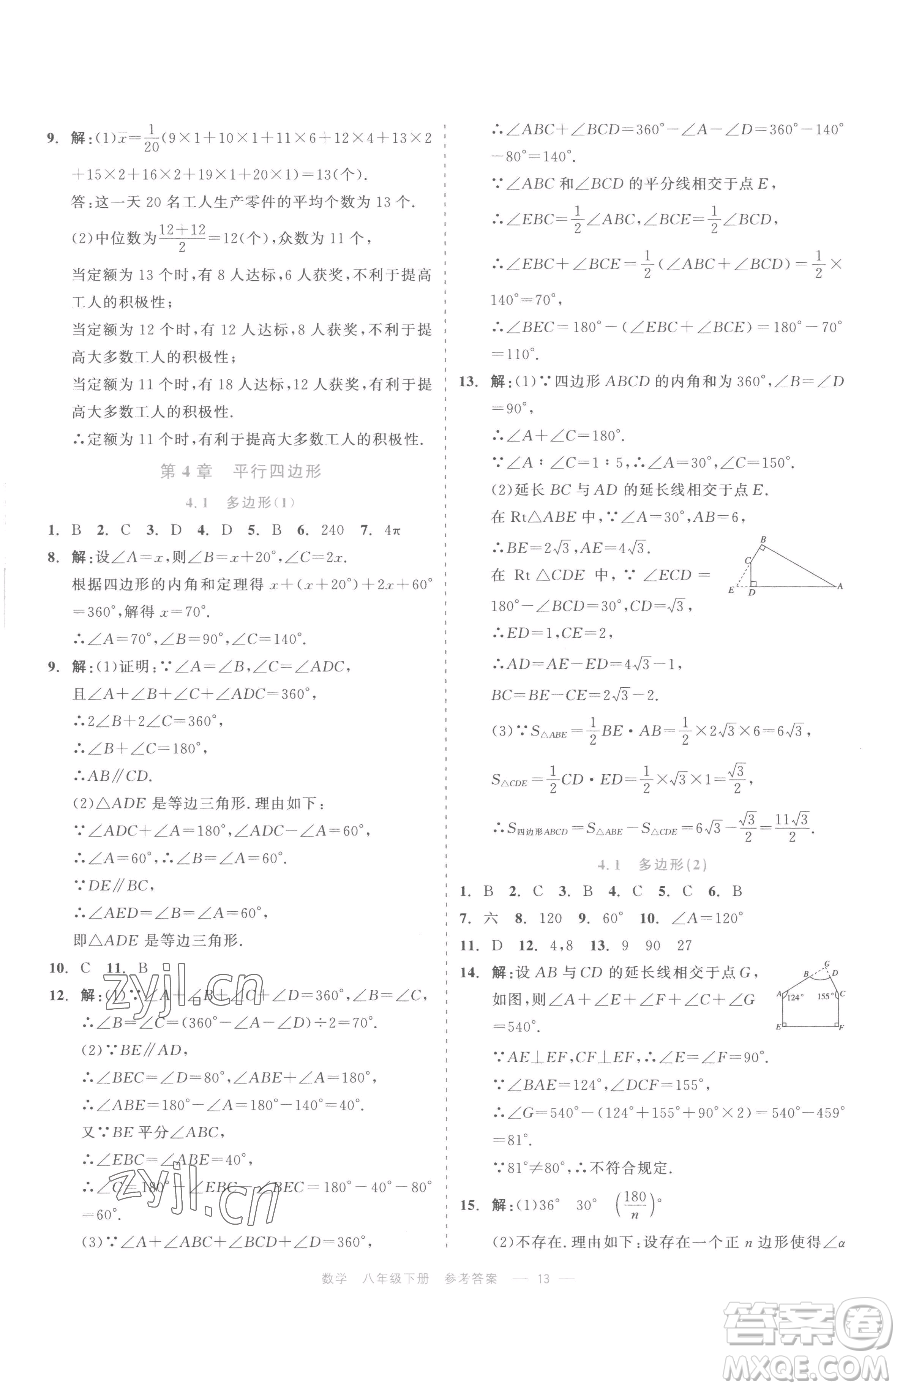 9. 解:(1)x̄=1/20(9×1+10×1+11×6+12×4+13×2
+15×2+16×2+19×1+20×1)=13(个).
答:这一天 20 名工人生产零件的平均个数为 13 个.
(2)中位数为(12+12)/2=12(个),众数为 11 个,
当定额为 13 个时,有 8 人达标,6 人获奖,不利于提高
工人的积极性;
当定额为 12 个时,有 12 人达标,8 人获奖,不利于提
高大多数工人的积极性;
当定额为 11 个时,有 18 人达标,12 人获奖,有利于
提高大多数工人的积极性.
∴定额为 11 个时,有利于提高大多数工人的积极性.
第 4 章 平行四边形
4.1 多边形(1)
1. B 2. C 3. D 4. D 5. B 6. 240 7. 4π
8. 解:设∠A=x,则∠B=x+20°,∠C=2x.
根据四边形的内角和定理得 x+(x+20°)+2x+60°
=360°,解得 x=70°.
∴∠A=70°,∠B=90°,∠C=140°.
9. 解:(1)证明:∵∠A=∠B,∠C=∠ADC,
且∠A+∠B+∠C+∠ADC=360°,
∴2∠B+2∠C=360°,
∴∠B+∠C=180°,
∴AB∥CD.
(2)△ADE 是等边三角形.理由如下:
∵∠ADC+∠A=180°,∠ADC-∠A=60°,
∴∠A=60°,∴∠B=∠A=60°.
∵DE∥BC,
∴∠AED=∠B=∠A=60°,
∴∠ADE=180°-∠A-∠AED=60°,
即△ADE 是等边三角形.
10. C 11. B
12. 解:(1)∵∠A+∠B+∠C+∠D=360°,∠B=∠C,
∴∠B=∠C=(360°-∠A-∠D)÷2=70°.
(2)∵BE∥AD,
∴∠BEC=∠D=80°,∠ABE+∠A=180°,
∴∠ABE=180°-∠A=180°-140°=40°.
又∵BE 平分∠ABC,
∴∠EBC=∠ABE=40°,
∴∠C=180°-∠EBC-∠BEC=180°-40°-80°=
60°.
(3)∵∠A+∠ABC+∠BCD+∠D=360°,
∴∠ABC+∠BCD=360°-∠A-∠D=360°-140°
-80°=140°.
∵∠ABC 和∠BCD 的平分线相交于点 E,
∴∠EBC=1/2∠ABC,∠BCE=1/2∠BCD,
∴∠EBC+∠BCE=1/2(∠ABC+∠BCD)=1/2×
140°=70°,
∴∠BEC=180°-(∠EBC+∠BCE)=180°-70°
=110°.
13. 解:(1)∵四边形 ABCD 的内角和为 360°,∠B=∠D
=90°,
∴∠A+∠C=180°.
∵∠A∶∠C=1∶5,∴∠C=150°.
(2)延长 BC 与 AD 的延长线相交于点 E.
在 Rt△ABE 中,∵∠A=30°,AB=6,
∴BE=2√3,AE=4√3.
在 Rt△CDE 中,∵∠ECD=
180°-∠BCD=30°,CD=√3,
∴ED=1,CE=2,
∴AD=AE-ED=4√3-1,
BC=BE-CE=2√3-2.
(3)∵S△ABE=1/2BE·AB=1/2×2√3×6=6√3,
S△CDE=1/2CD·ED=1/2×√3×1=√3/2,
∴S四边形ABCD=S△ABE-S△CDE=6√3-√3/2=11√3/2.
B
C
E D A
4.1 多边形(2)
1. B 2. C 3. B 4. C 5. C 6. B
7. 六 8. 120 9. 60° 10. ∠A=120°
11. D 12. 4,8 13. 9 90 27
14. 解:设 AB 与 CD 的延长线相交于点 G,
如图,则∠A+∠E+∠F+∠C+∠G
=540°.
∵AE⊥EF,CF⊥EF,
∴∠E+∠F=90°+90°=180°.
∵∠BAE=124°,∠DCF=155°,
∴∠G=540°-(124°+155°+90°+90°)=540°-459°
=81°.
∵81°≠80°,∴不符合规定.
G
B D
A 124° 155° C
E F
15. 解:(1)36° 30° (180/n)°
(2)不存在.理由如下:设存在一个正 n 边形使得∠α
数学 八年级下册 参考答案 — 13 —
zyjl.cn
zyjl.cn
答案圈
MXQE.COM